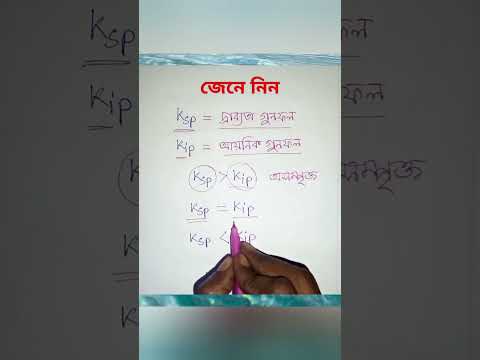 জেনে নিন
Ksp = দ্রাব্যতা গুনফল
Kip = আয়নিক গুনফল
Ksp > Kip অসম্পৃক্ত
Ksp = Kip
Ksp < Kip